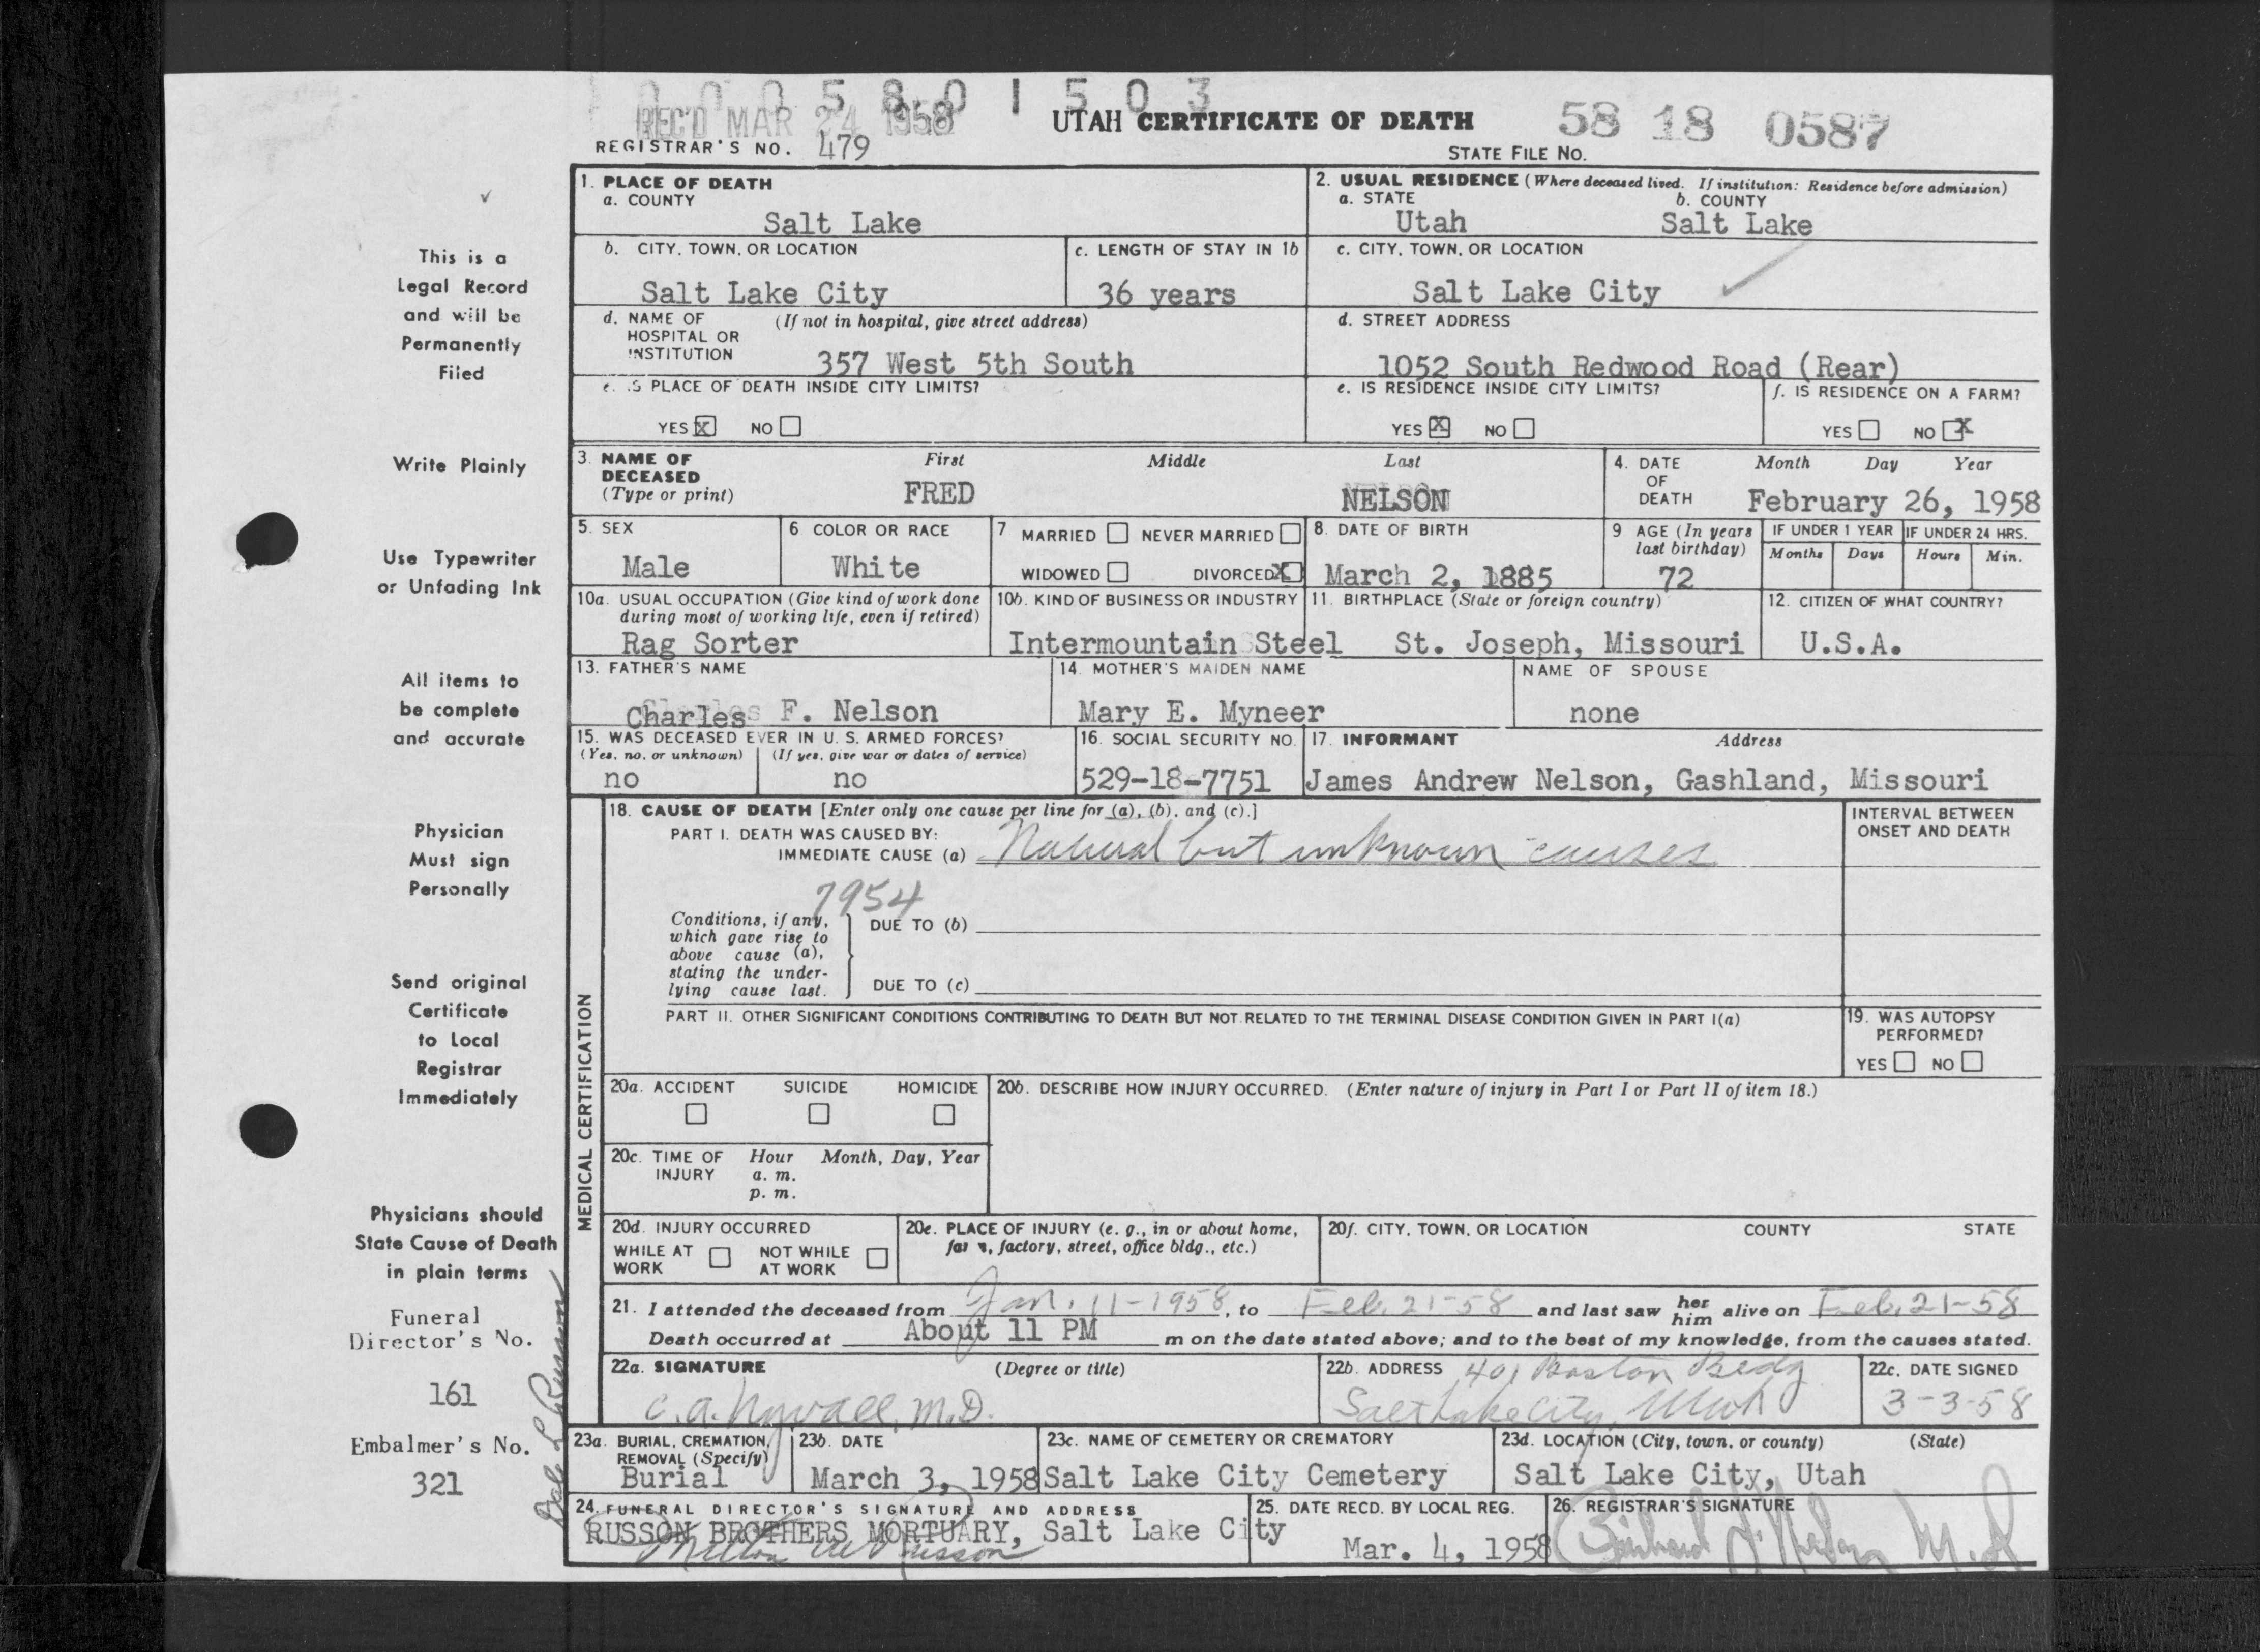 0 0 0 5 8 0 1 5 0 3
REC'D MAR 24 1958
UTAH CERTIFICATE OF DEATH
58 18 0587
REGISTRAR'S NO. 479
STATE FILE NO.
This is a
Legal Record
and will be
Permanently
Filed
Write Plainly
Use Typewriter
or Unfading Ink
All items to
be complete
and accurate
Physician
Must sign
Personally
Send original
Certificate
to Local
Registrar
Immediately
Physicians should
State Cause of Death
in plain terms
Funeral
Director's No.
161
Embalmer's No.
321
1. PLACE OF DEATH
a. COUNTY
Salt Lake
2. USUAL RESIDENCE (Where deceased lived. If institution: Residence before admission)
a. STATE b. COUNTY
Utah Salt Lake
b. CITY, TOWN, OR LOCATION
Salt Lake City
c. LENGTH OF STAY IN 1b
36 years
c. CITY, TOWN, OR LOCATION
Salt Lake City
d. NAME OF (If not in hospital, give street address)
HOSPITAL OR
INSTITUTION 357 West 5th South
d. STREET ADDRESS
1052 South Redwood Road (Rear)
e. IS PLACE OF DEATH INSIDE CITY LIMITS?
YES X NO
e. IS RESIDENCE INSIDE CITY LIMITS?
YES X NO
f. IS RESIDENCE ON A FARM?
YES NO X
3. NAME OF DECEASED (Type or print)
First Middle Last
FRED NELSON
4. DATE OF DEATH
Month Day Year
February 26, 1958
5. SEX
Male
6 COLOR OR RACE
White
7 MARRIED NEVER MARRIED
WIDOWED DIVORCED X
8. DATE OF BIRTH
March 2, 1885
9 AGE (In years last birthday)
72
IF UNDER 1 YEAR
Months Days
IF UNDER 24 HRS.
Hours Min.
10a. USUAL OCCUPATION (Give kind of work done
during most of working life, even if retired)
Rag Sorter
10b. KIND OF BUSINESS OR INDUSTRY
Intermountain Steel
11. BIRTHPLACE (State or foreign country)
St. Joseph, Missouri
12. CITIZEN OF WHAT COUNTRY?
U.S.A.
13. FATHER'S NAME
Charles F. Nelson
14. MOTHER'S MAIDEN NAME
Mary E. Myneer
NAME OF SPOUSE
none
15. WAS DECEASED EVER IN U. S. ARMED FORCES?
(Yes, no, or unknown) (If yes, give war or dates of service)
no no
16. SOCIAL SECURITY NO.
529-18-7751
17. INFORMANT Address
James Andrew Nelson, Gashland, Missouri
MEDICAL CERTIFICATION
18. CAUSE OF DEATH [Enter only one cause per line for (a), (b), and (c).]
PART I. DEATH WAS CAUSED BY:
IMMEDIATE CAUSE (a) Natural but unknown causes
INTERVAL BETWEEN
ONSET AND DEATH
7954
Conditions, if any,
which gave rise to
above cause (a),
stating the under-
lying cause last.
DUE TO (b)
DUE TO (c)
PART II. OTHER SIGNIFICANT CONDITIONS CONTRIBUTING TO DEATH BUT NOT RELATED TO THE TERMINAL DISEASE CONDITION GIVEN IN PART I(a)
19. WAS AUTOPSY
PERFORMED?
YES NO
20a. ACCIDENT SUICIDE HOMICIDE
20b. DESCRIBE HOW INJURY OCCURRED. (Enter nature of injury in Part I or Part II of item 18.)
20c. TIME OF INJURY
Hour Month, Day, Year
a. m.
p. m.
20d. INJURY OCCURRED
WHILE AT WORK NOT WHILE AT WORK
20e. PLACE OF INJURY (e. g., in or about home,
farm, factory, street, office bldg., etc.)
20f. CITY, TOWN, OR LOCATION COUNTY STATE
21. I attended the deceased from Jan. 11-1958, to Feb. 21-58 and last saw her him alive on Feb. 21-58
Death occurred at About 11 PM m on the date stated above; and to the best of my knowledge, from the causes stated.
22a. SIGNATURE (Degree or title)
C. A. Nyvall, M.D.
22b. ADDRESS 401 Boston Bldg
Salt Lake City, Utah
22c. DATE SIGNED
3-3-58
23a. BURIAL, CREMATION,
REMOVAL (Specify)
Burial
23b. DATE
March 3, 1958
23c. NAME OF CEMETERY OR CREMATORY
Salt Lake City Cemetery
23d. LOCATION (City, town, or county) (State)
Salt Lake City, Utah
24. FUNERAL DIRECTOR'S SIGNATURE AND ADDRESS
RUSSON BROTHERS MORTUARY, Salt Lake City
25. DATE RECD. BY LOCAL REG.
Mar. 4, 1958
26. REGISTRAR'S SIGNATURE